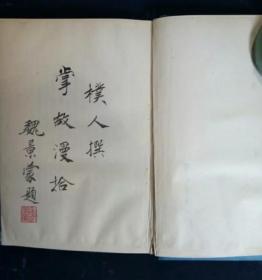 樸人撰
掌故漫拾
魏景蒙題